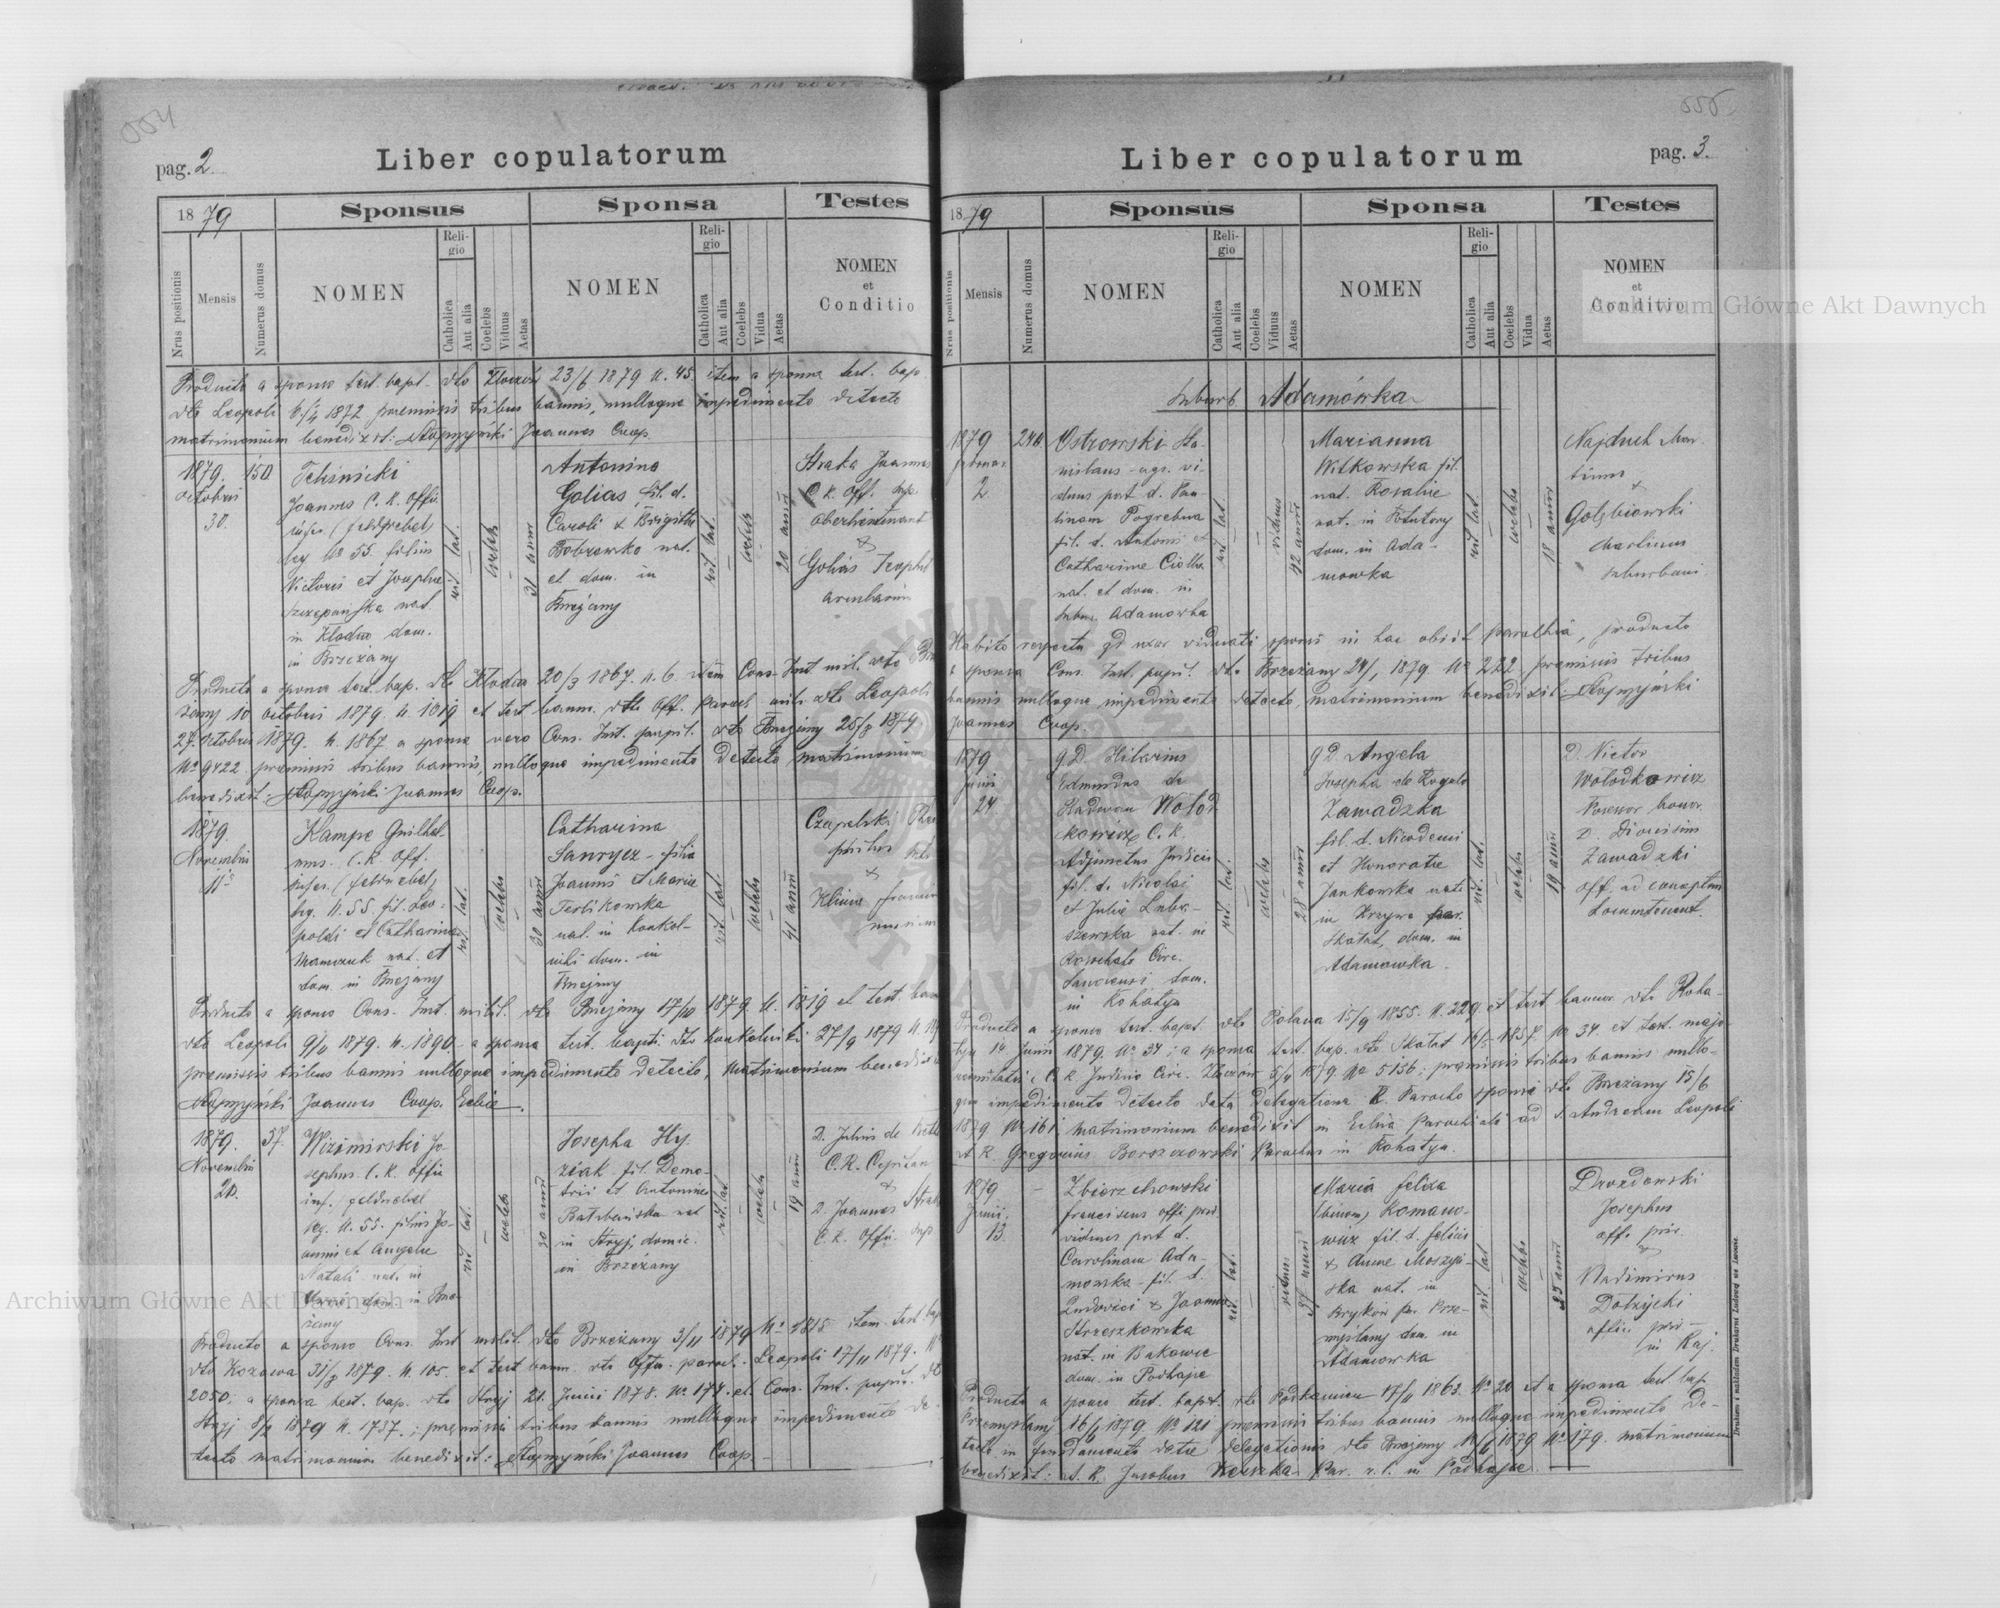 pag. 2.
Liber copulatorum
18 79
Sponsus
Sponsa
Testes
Nrus positionis
Mensis
Numerus domus
NOMEN
Religio
Catholica
Aut alia
Coelebs
Viduus
Aetas
NOMEN
Religio
Catholica
Aut alia
Coelebs
Vidua
Aetas
NOMEN
et
Conditio
Producto a sponso test. bapt. dto 23/6 1879 N. 45 item a sponsa test. bap
dto Leopoli 1872 praemissis tribus bannis, nulloque impedimento detecto
matrimonium benedixit: Joannes Coop.
1879.
Octobris
30.
150
Joannes C. K. Offi.
infer. (feldwebel)
leg No 55. filius
Victoris et Josephae
Szczepańska nat.
in Kłodno dom.
in Brzeżany
rit. lat.
coelebs
31 anni
Antonina
Golias fil. d.
Caroli & Brigitte
Bobrowska nat.
et dom. in
Brzeżany
rit. lat.
coelebs
20 anni
Straka Joannes
C. K. Off. sup.
oberlieutenant
&
Golias
Producto a sponso test. bap. dto 20/3 1867. N. 6. item Cons. Inst. mil. dto
10 octobris 1879. N. 1019 et test. bann. dto Off. Paroch. mil. dto Leopoli
27. Octobris 1879. N. 1867 a sponsa vero Cons. Inst. pupil. dto Brzeżany 25/8 1879
No 9422. praemissis tribus bannis, nulloque impedimento detecto matrimonium
benedixit. Joannes Coop.
1879.
Novembris
11
Kampe Guilhel
mus. C. K. Off.
infer. (feldwebel)
leg. N. 55. fil. Leo-
poldi et Catharina
nat. et
dom. in Brzeżany
rit. lat.
coelebs
30 anni
Catharina
filia
Joannis et Mariae
Terlikowska
nat. in Konkol-
niki dom. in
Brzeżany
rit. lat.
coelebs
41 anni
Czapelski
&
Producto a sponso Cons. Inst. milit. dto Brzeżany 17/10 1879. N. 1819 et test. bann
dto Leopoli 9/11 1879. N. 1890. a sponsa test. bapti. dto Konkolniki 27/9 1879 N.
praemissis tribus bannis nulloque impedimento detecto, matrimonium benedixit
Joannes Coop. Eccliae.
1879.
Novembris
20.
57.
Wizimirski Jo
sephus. C. K. Offic
inf. feldwebel
leg. N. 55. filius Jo-
annis et Angelae
Natali nat. in
dom. in Brze
żany
rit. lat.
coelebs
30 anni
Josepha Hy-
ziak fil. Deme-
trii et Antoninae
nat
in Stryj, domic.
in Brzeżany
rit. lat
coelebs
19 anni
D. Julius de
C. K. Capitan
&
D. Joannes Straka
C. K. Offic. sup
Producto a sponso Cons. Inst. milit. dto Brzeżany 3/11 1879 No 1815 item test. bap
dto Kozowa 31/8 1879. N. 105. et test bann. dto Offic. paroch. Leopoli 17/11 1879. No
2050. a sponsa test. bap. dto Stryj 21. Junii 1878. No 174. et Cons. Inst. pupil. dto
Stryj 1879 N. 1737. ; praemissis tribus bannis nulloque impedimento de-
tecto matrimonium benedixit: Joannes Coop
pag. 3.
Liber copulatorum
18 79
Sponsus
Sponsa
Testes
Nrus positionis
Mensis
Numerus domus
NOMEN
Religio
Catholica
Aut alia
Coelebs
Viduus
Aetas
NOMEN
Religio
Catholica
Aut alia
Coelebs
Vidua
Aetas
NOMEN
et
Conditio
Suburb. Adamówka
1879
Februar.
2
Ostrowski Sta-
nislaus agr. vi-
duus post d. Pau-
linam Pogrebna
fil. d. Antonii et
Catharinae
nat. et dom. in
Subur. Adamowka
rit. lat.
viduus
42 anni
Marianna
Witkowska fil.
nat. Rosaliae
nat. in
dom. in Ada-
mowka
rit. lat.
coelebs
18 anni
Najduch Mar-
tinus
&
Gołębiowski
Martinus
suburbani
Habito respectu qd uxor viduati sponsi in hac obiit parochia, producto
a sponsa Cons. Inst. pupil. dto Brzeżany 24/1 1879. No 222 praemissis tribus
bannis nulloque impedimento detecto, matrimonium benedixit:
Joannes Coop.
1879
Junii
24
G. D. Hilarius
Edmundus de
Wołod-
kowicz C. K.
Adjunctus Judicii
fil. d. Nicolai
et Juliae Luba-
szewska nat. in
Circ.
dom.
in Rohatyn
rit. lat.
coelebs
28 anni
G D Angela
Josepha de Rogala
Zawadzka
fil. d. Nicodemi
et Honoratae
Jankowska nata
in Krzywe par.
Skałat, dom. in
Adamowka.
rit. lat.
coelebs
19 anni
D. Victor
Wołodkowicz
Possessor bonor.
D. Dionisius
Zawadzki
off. ad conceptum
Locumtenent.
Producto a sponso test. bapt. dto 15/9 1855. N. 229. et test bannor. dto Roha-
tyn 14 Junii 1879. No 34 ; a sponsa test. bap. dto Skałat 1857. No 34 et test. majo-
rennitatis C. K. Judicio Circ. Złoczow 1879 No 5156 ; praemissis tribus bannis nullo-
que impedimento detecto data delegatione Parocho sponsi dto Brzeżany 15/6
1879 No 161. Matrimonium benedixit in Eclia Parochiali ad S. Andream Leopoli
A. R. Gregorius Paroclus in Rohatyn.
1879
Junii.
13.
Zbierzchowski
Franciscus offi. priv.
viduus post d.
Carolinam Ada-
mowska - fil. d.
Ludovici & Joannae
Strzeszkowska
nat. in Bakowce
dom. in Podhajce
rit. lat.
viduus
37 anni
Maria Felixa
(binom) Romano-
wicz fil. d. Felicis
& Annae Moszyń-
ska nat. in
Brykoń par. Prze-
myślany dom. in
Adamowka
rit. lat
coelebs
25 anni
Drozdowski
Josephus
off. priv.
&
Vladimirus
Dobrzycki
offic. priv
Producto a sponso test. bapt. dto Podkamień 17/11 1863. No 20 et a sponsa test. bap
Przemyślany 16/6 1879. No 121 praemissis tribus bannis nulloque impedimento De-
tecto in fundamento datae delegationis dto Brzeżany 1879 No 179. matrimonium
benedixit: A. R. Jacobus Par. r. l. in Podhajce.
Drukiem i nakładem Drukarni Ludowej we Lwowie.
Archiwum Główne Akt Dawnych
Archiwum Główne Akt Dawnych